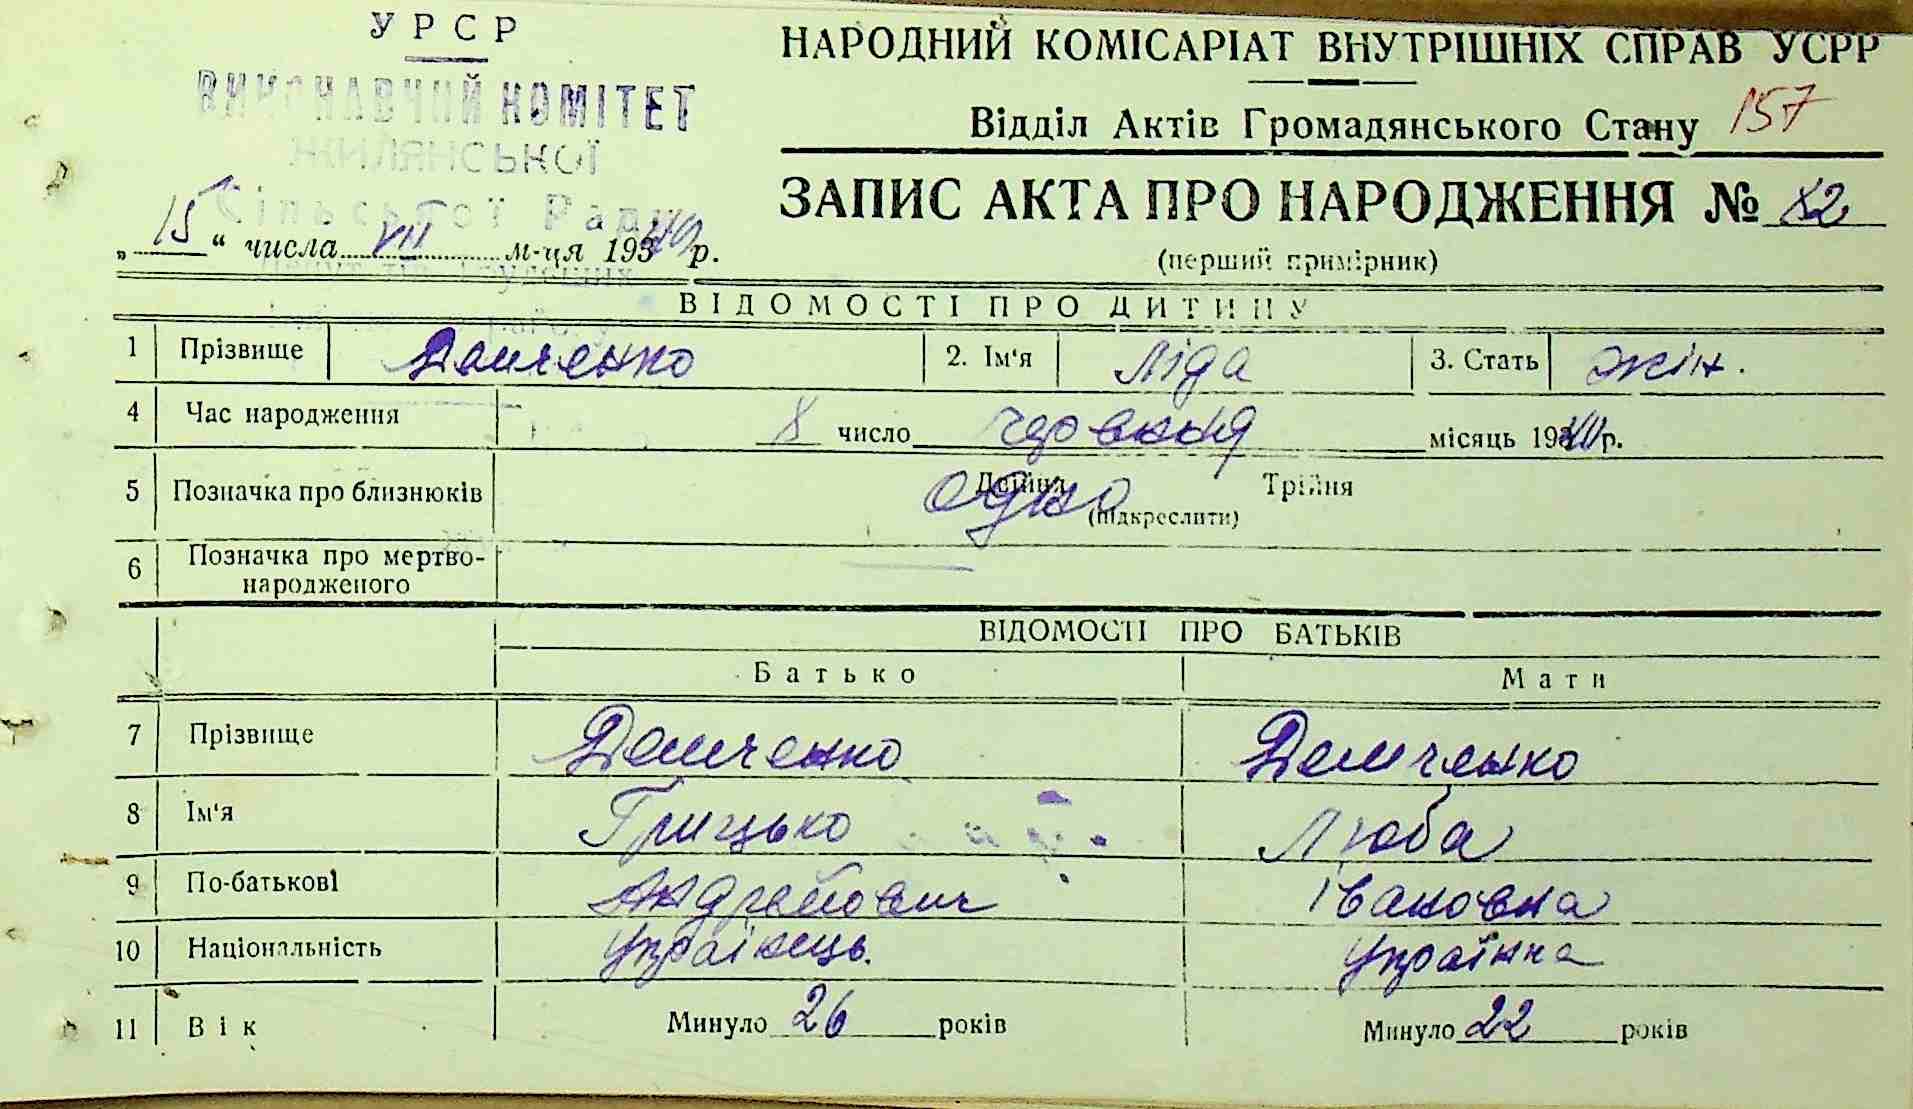 УРСР
ВИКОНАВЧИЙ КОМІТЕТ
ЖИЛЯНСЬКОЇ
Сільської Ради
НАРОДНИЙ КОМІСАРІАТ ВНУТРІШНІХ СПРАВ УСРР
Відділ Актів Громадянського Стану 157
ЗАПИС АКТА ПРО НАРОДЖЕННЯ № 82
(перший примірник)
„15“ числа VII м-ця 1940 р.
ВІДОМОСТІ ПРО ДИТИНУ
1 Прізвище Демченко 2. Ім'я Ліда 3. Стать жін.
4 Час народження 8 число червня місяць 1940 р.
5 Позначка про близнюків Двійня одно Трійня
(підкреслити)
6 Позначка про мертво-
народженого
ВІДОМОСТІ ПРО БАТЬКІВ
Батько Мати
7 Прізвище Демченко Демченко
8 Ім'я Грицько Люба
9 По-батькові Андрейович Івановна
10 Національність Українець. Українка
11 Вік Минуло 26 років Минуло 22 років